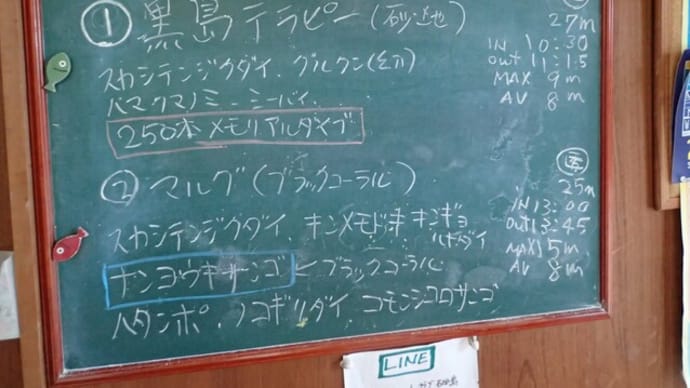 ① 黒島テラピー(砂地)
スカシテンジクダイ、グルクン(幼)
ハマクマノミ、ミーバイ、
250本メモリアルダイブ
27m
IN 10:30
out 11:15
MAX 9m
AV 8m
② マルグ(ブラックコーラル)
スカシテンジクダイ、キンメモドキ キンギョ
ハナダイ
ナンヨウキサンゴ ←ブラックコーラル
ハタンポ、ノコギリダイ、コモンシコロサンゴ
25m
IN 13:00
out 13:45
MAX 15m
AV 8m
LINE